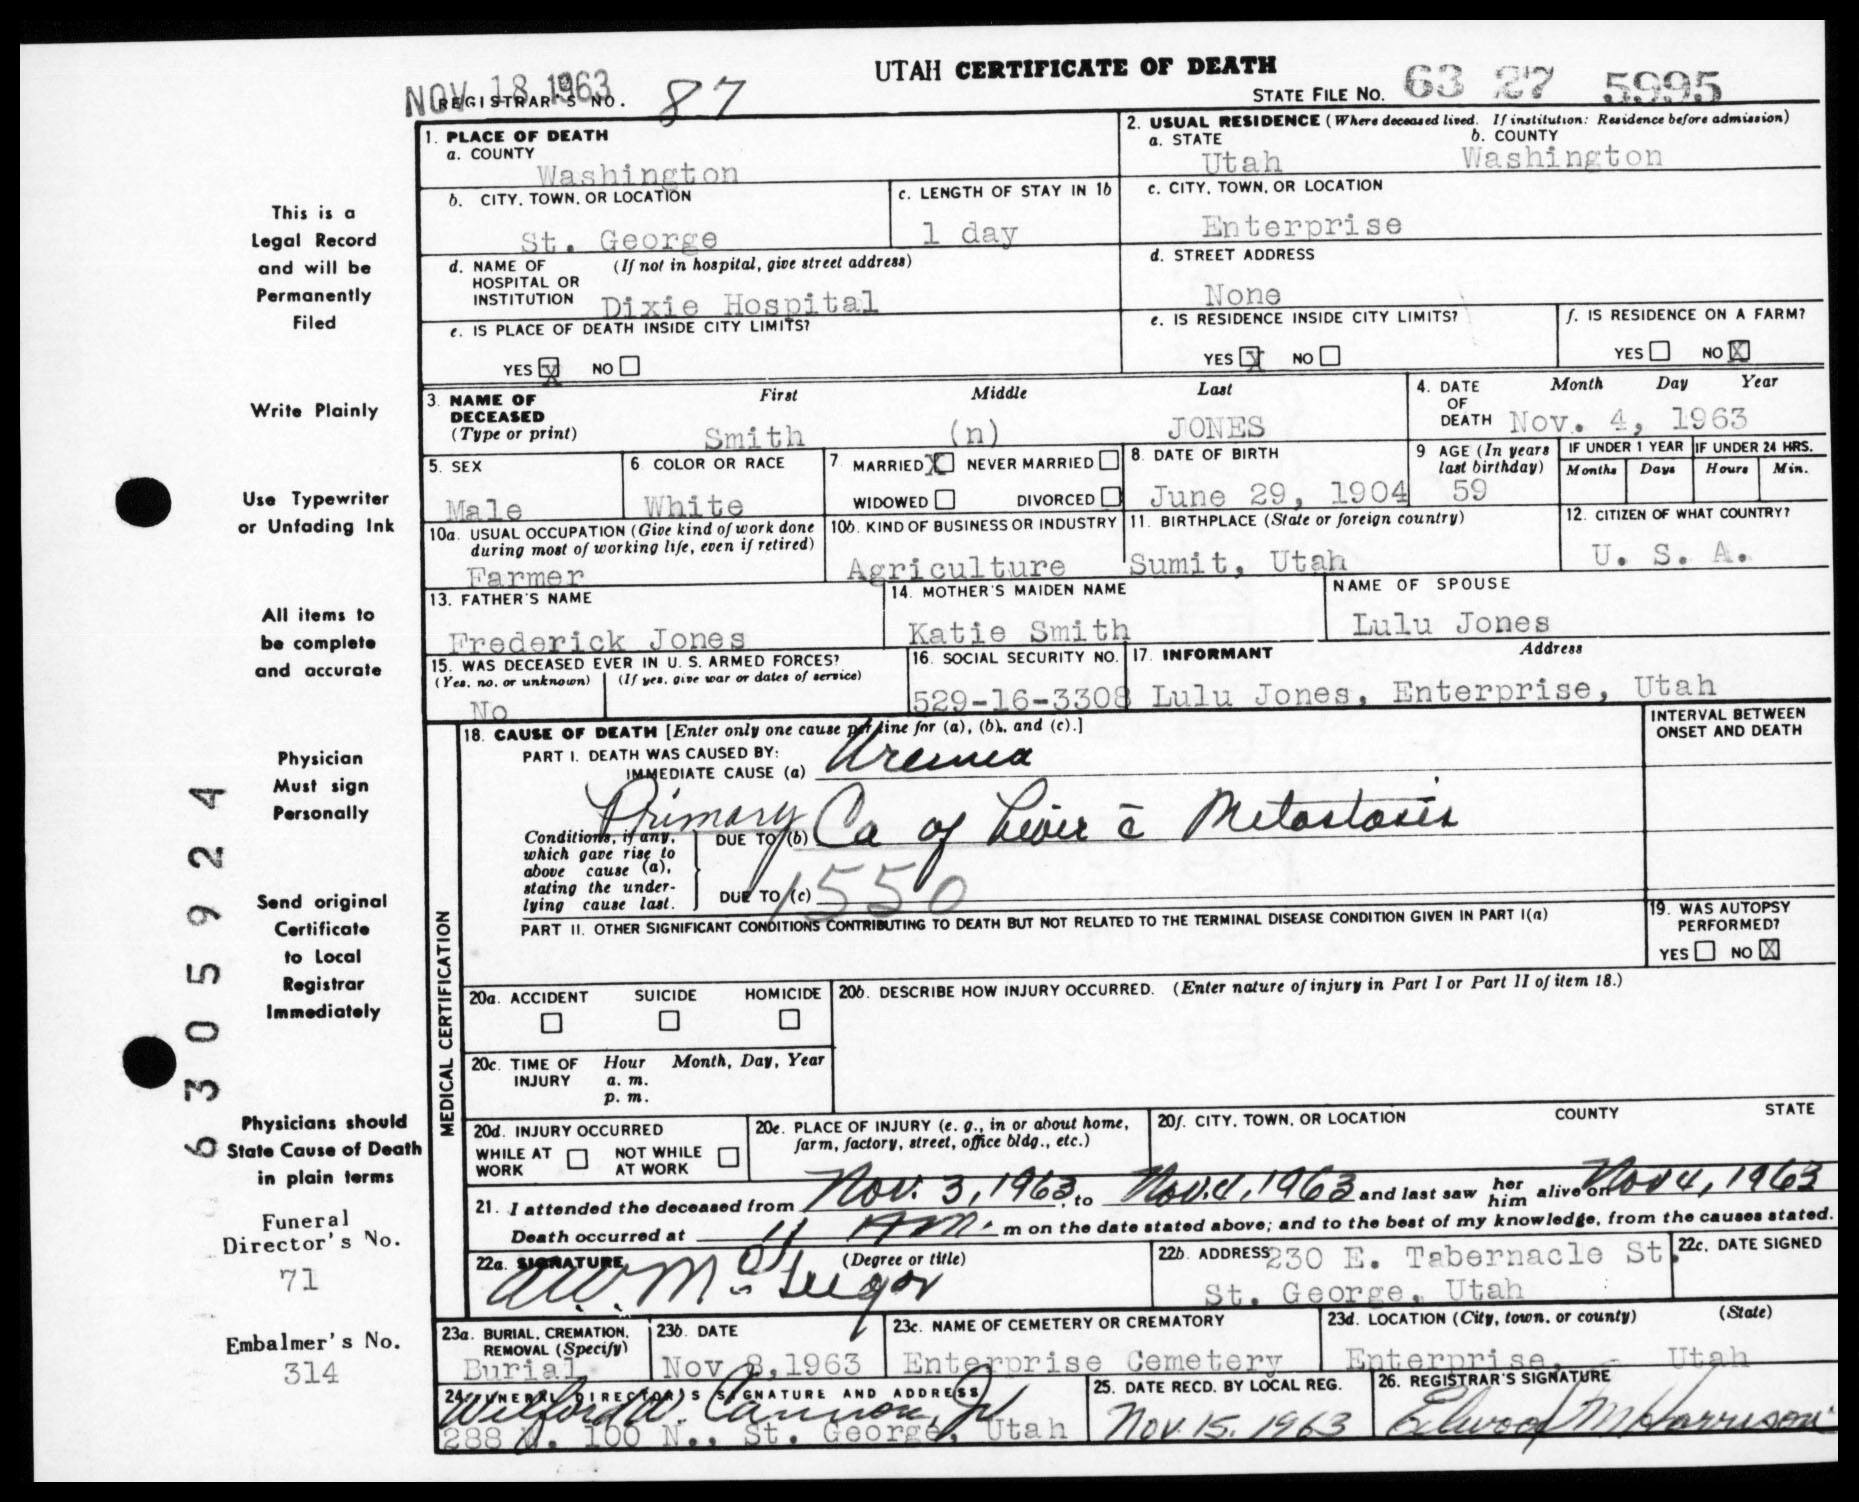 UTAH CERTIFICATE OF DEATH
NOV 18 1963
REGISTRAR'S NO. 87
STATE FILE NO. 63 27 5995
1. PLACE OF DEATH
a. COUNTY
Washington
2. USUAL RESIDENCE (Where deceased lived. If institution: Residence before admission)
a. STATE b. COUNTY
Utah Washington
b. CITY, TOWN, OR LOCATION
St. George
c. LENGTH OF STAY IN 1b
1 day
c. CITY, TOWN, OR LOCATION
Enterprise
d. NAME OF (If not in hospital, give street address)
HOSPITAL OR
INSTITUTION Dixie Hospital
d. STREET ADDRESS
None
e. IS PLACE OF DEATH INSIDE CITY LIMITS?
YES X NO
e. IS RESIDENCE INSIDE CITY LIMITS?
YES X NO
f. IS RESIDENCE ON A FARM?
YES NO X
3. NAME OF DECEASED (Type or print)
First Middle Last
Smith (n) JONES
4. DATE OF DEATH Month Day Year
Nov. 4, 1963
5. SEX
Male
6 COLOR OR RACE
White
7. MARRIED X NEVER MARRIED
WIDOWED DIVORCED
8. DATE OF BIRTH
June 29, 1904
9 AGE (In years last birthday)
59
IF UNDER 1 YEAR IF UNDER 24 HRS.
Months Days Hours Min.
10a. USUAL OCCUPATION (Give kind of work done
during most of working life, even if retired)
Farmer
10b. KIND OF BUSINESS OR INDUSTRY
Agriculture
11. BIRTHPLACE (State or foreign country)
Sumit, Utah
12. CITIZEN OF WHAT COUNTRY?
U. S. A.
13. FATHER'S NAME
Frederick Jones
14. MOTHER'S MAIDEN NAME
Katie Smith
NAME OF SPOUSE
Lulu Jones
15. WAS DECEASED EVER IN U. S. ARMED FORCES?
(Yes, no, or unknown) (If yes, give war or dates of service)
No
16. SOCIAL SECURITY NO.
529-16-3308
17. INFORMANT Address
Lulu Jones, Enterprise, Utah
MEDICAL CERTIFICATION
18. CAUSE OF DEATH [Enter only one cause per line for (a), (b), and (c).]
PART I. DEATH WAS CAUSED BY:
IMMEDIATE CAUSE (a) Uremia
INTERVAL BETWEEN
ONSET AND DEATH
Conditions, if any,
which gave rise to
above cause (a),
stating the under-
lying cause last.
DUE TO (b) Primary Ca of Liver c̄ Metastasis
DUE TO (c) 1550
PART II. OTHER SIGNIFICANT CONDITIONS CONTRIBUTING TO DEATH BUT NOT RELATED TO THE TERMINAL DISEASE CONDITION GIVEN IN PART I(a)
19. WAS AUTOPSY
PERFORMED?
YES NO X
20a. ACCIDENT SUICIDE HOMICIDE
20b. DESCRIBE HOW INJURY OCCURRED. (Enter nature of injury in Part I or Part II of item 18.)
20c. TIME OF INJURY Hour Month, Day, Year
a. m.
p. m.
20d. INJURY OCCURRED
WHILE AT WORK NOT WHILE AT WORK
20e. PLACE OF INJURY (e. g., in or about home,
farm, factory, street, office bldg., etc.)
20f. CITY, TOWN, OR LOCATION COUNTY STATE
21. I attended the deceased from Nov. 3, 1963, to Nov. 4, 1963 and last saw her him alive on Nov 4, 1963
Death occurred at 11 AM. m on the date stated above; and to the best of my knowledge, from the causes stated.
22a. SIGNATURE (Degree or title)
22b. ADDRESS 230 E. Tabernacle St.
St. George, Utah
22c. DATE SIGNED
23a. BURIAL, CREMATION,
REMOVAL (Specify)
Burial
23b. DATE
Nov 8, 1963
23c. NAME OF CEMETERY OR CREMATORY
Enterprise Cemetery
23d. LOCATION (City, town, or county) (State)
Enterprise, Utah
24. FUNERAL DIRECTOR'S SIGNATURE AND ADDRESS
Wilford W. Cannon, Jr
288 W. 100 N., St. George, Utah
25. DATE RECD. BY LOCAL REG.
Nov. 15, 1963
26. REGISTRAR'S SIGNATURE
Elwood M Harrison
This is a
Legal Record
and will be
Permanently
Filed
Write Plainly
Use Typewriter
or Unfading Ink
All items to
be complete
and accurate
Physician
Must sign
Personally
Send original
Certificate
to Local
Registrar
Immediately
Physicians should
State Cause of Death
in plain terms
Funeral
Director's No.
71
Embalmer's No.
314
6305924